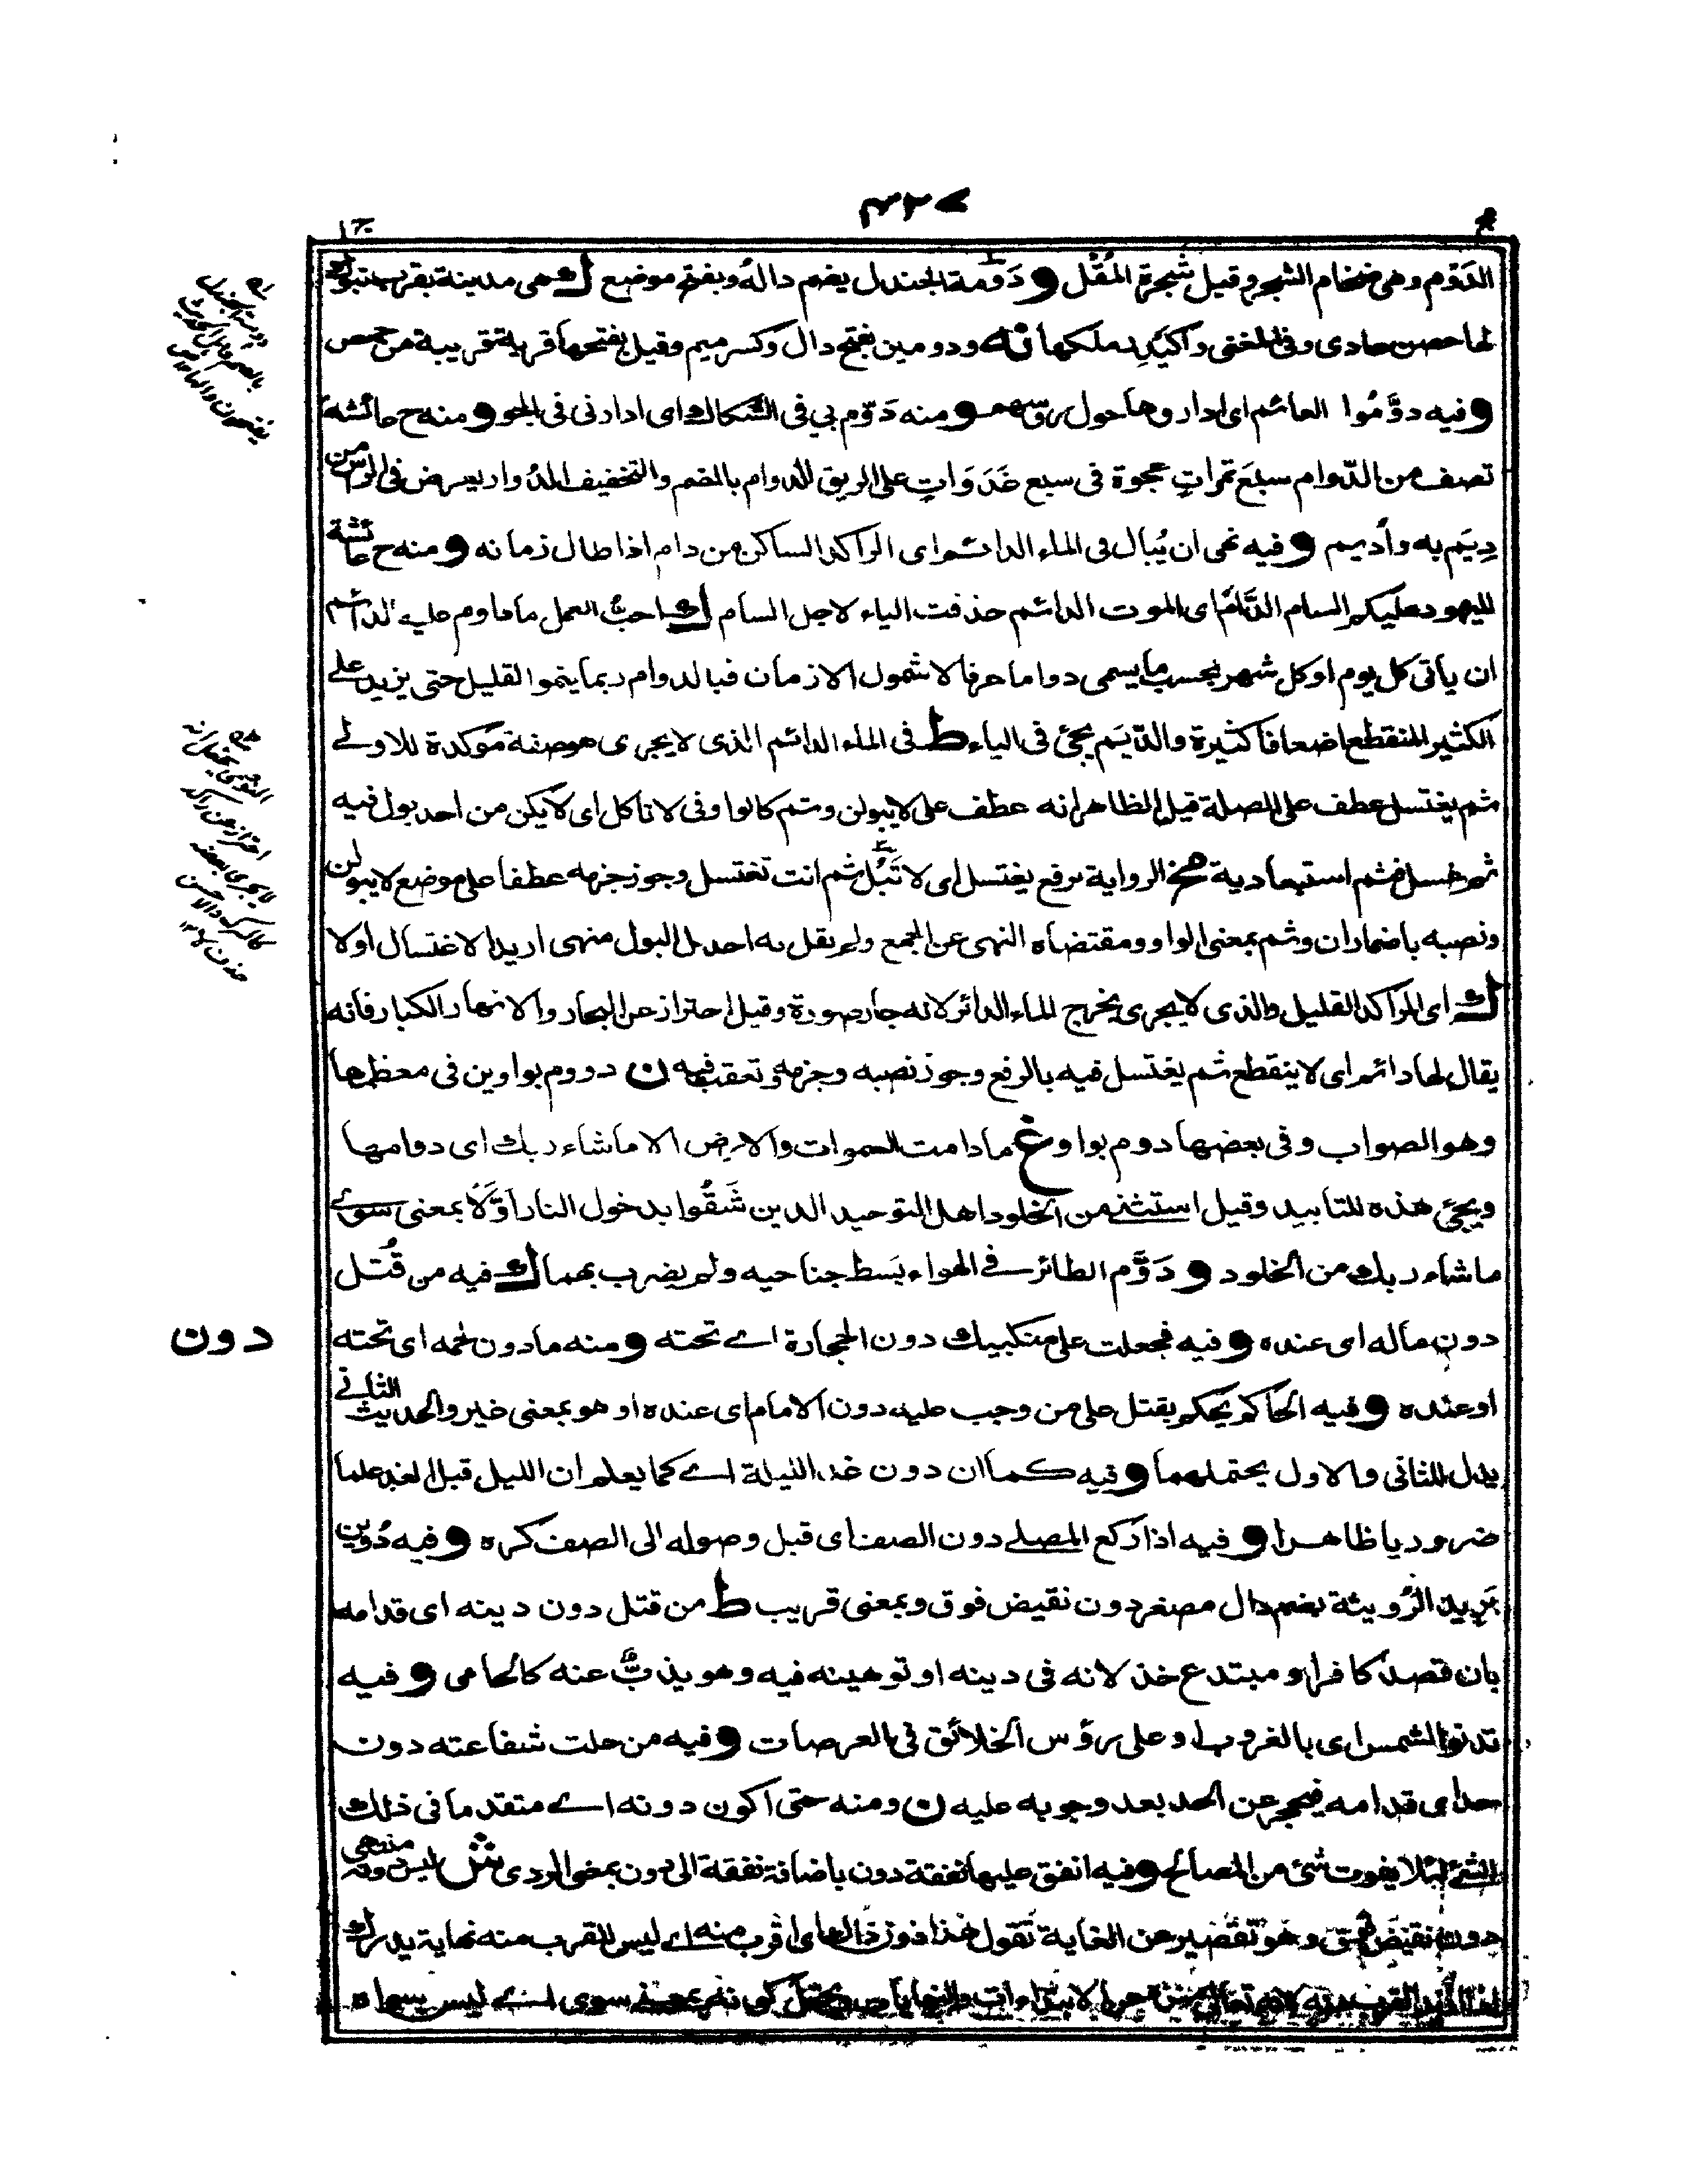 ٤٢٧
ج ١
الدَوْم وهى ضخام الشجر وقيل شجرة المُقْل و دَومة الجندل بضم داله وبفتح موضع ك هى مدينة بقرب تبوك
لها حصن عادى وفى المغنى واكيدر ملكها نه ودومين بفتح دال وكسر ميم وقيل بفتحها قرية قريبة من حمص
و فيه دوَّمُوا العمائم اى اداروها حول رؤسهم و منه دَوّم بي فى السُّكاك اى ادارنى فى الجو و منه ح عائشة
تصف من الدّوام سبعَ تمراتٍ عجوة فى سبع غَدَوَاتٍ على الريق الدوام بالضم والتخفيف الدوار يعرض فى الرأس من
دِيَم به وأديم و فيه نهى ان يُبال فى الماء الدائم اى الراكد الساكن من دام اذا طال زمانه و منه ح عائشة
لليهود عليكم السام الدَّامُ اى الموت الدائم حذفت الياء لاجل السام ك احبُّ العمل ما داوم عليه الدائم
ان يأتى كل يوم او كل شهر بحسب ما يسمى دواما عرفا لا شمول الازمان فبالدوام ربما ينمو القليل حتى يزيد على
الكثير المنقطع اضعافا كثيرة والدّيَم يجئ فى الياء ط فى الماء الدائم الذى لا يجرى هو صفة مؤكدة للاولے
ثم يغتسل عطف على الصلة قيل الظاهر انه عطف على لا يبولن وثم كالواو فى لا تاكل اى لا يكن من احد بول فيه
ثم غسل فثم استبعادية مخ الرواية برفع يغتسل اى لا تَبُل ثم انت تغتسل وجوز جزمه عطفا على موضع لا يبولن
ونصبه باضمار ان وثم بمعنى الواو ومقتضاه النهى عن الجمع ولم يقل به احد بل البول منهى اريد الاغتسال اولا
ك اى الراكد القليل والذى لا يجرى يخرج الماء الدائر لانه جار صورة وقيل احتراز عن البحار والانهار الكبار فانه
يقال لها دائم اى لا ينقطع ثم يغتسل فيه بالرفع وجوز نصبه وجزمه وتعقب فيه ن دووم بواوين فى معظمها
وهو الصواب وفى بعضها دوم بواو غ ما دامت السموات والارض الا ما شاء ربك اى دوامها
ويجئ هذه للتابيد وقيل استثنے من الخلود اهل التوحيد الدين شَقُوا بدخول النار اوَّلًا بمعنى سوے
ما شاء ربك من الخلود و دَوَّم الطائر فے الهواء بسط جناحيه ولم يضرب بهما ك فيه من قُتل
دون
دون ماله اى عنده و فيه فجعلت على منكبيك دون الحجارة اے تحته و منه ما دون لحمه اى تحته
او عنده و فيه الحاكم يحكم بقتل على من وجب عليه دون الامام اى عنده او هو بمعنى غير والحديث الثانے
يدل للثانى والاول يحتملهما و فيه كما ان دون غد الليلة اے كما يعلم ان الليل قبل الغد علما
ضروريا ظاهرا و فيه اذا ركع المصلے دون الصف اى قبل وصوله الى الصف كره و فيه دُوين
بَريد الرُّويثة بضم دال مصغر دون نقيض فوق وبمعنى قريب ط من قتل دون دينه اى قدامه
بان قصد كافر او مبتدع خذلانه فى دينه او توهينه فيه وهو يذبُّ عنه كالحامى و فيه
تدنو الشمس اى بالغروب او على رؤس الخلائق فى العرصات و فيه من حلت شفاعته دون
حد اى قدامه فيحجز عن الحد بعد وجوبه عليه ن ومنه حتى اكون دونه اے متقدما فى ذلك
الشئ لئلا يفوت شئ من المصالح و فيه انفق عليها نفقة دون باضافة نفقة الى دون بمعنى الردى ش ليس دونه منتهى
دون نقيض فوق وهو تقصير عن الغاية تقول هذا دون ذلك اى اقرب منه اے ليس للقرب منه نهاية يدرك
سوى اے ليس سواه